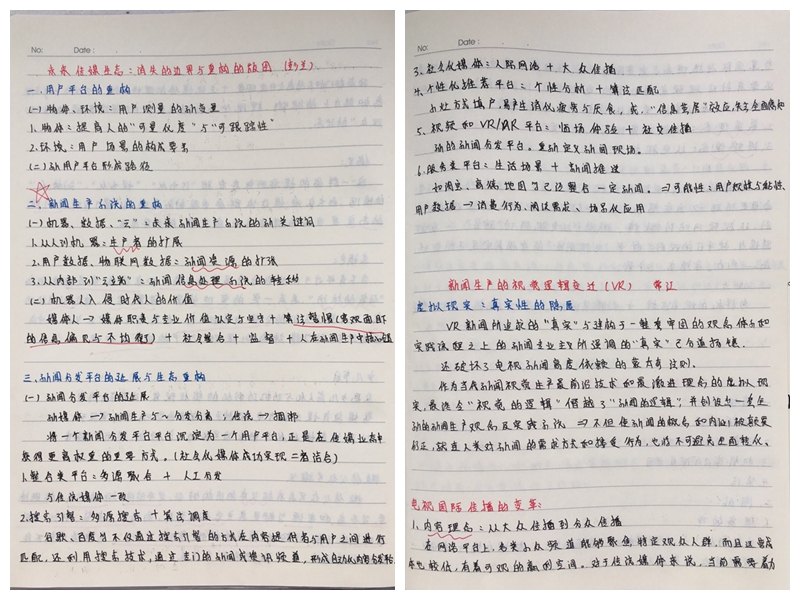 No:
Date:
未来传媒生态：消失的边界与重构的版图（彭兰）
一、用户平台的重构
(一)物体、环境：用户测量的新变量
1.物体：提高人的"可量化度"与"可跟踪性"
2.环境：用户场景的构成要素
(二)新用户平台形成路径
二、新闻生产系统的重构
(一)机器、数据、"云"：未来新闻生产系统的新关键词
1.从人到机器：生产者的扩展
2.用户数据、物联网数据：新闻资源的扩张
3.从内部到"云端"：新闻信息处理系统的转移
(二)机器人入侵时代人的价值
媒体人→媒体职责与专业价值认定与坚守+算法警惕(客观面貌
的信息偏见与不均衡)+社会整合+监督+人在新闻生产中核心地位
三、新闻分发平台的延展与生态重构
(一)新闻分发平台的延展
新媒体→新闻生产与~分发分离→传统→捆绑
将一个新闻分发平台平台沉淀为一个用户平台，正是在传媒业态中
获得更高权重的重要方式。(社交化媒体成功实现二者结合)
1.整合类平台：多源聚合+人工分发
与传统媒体一致
2.搜索引擎：多源搜索+算法调度
谷歌、百度等不仅通过搜索引擎的方式在内容提供者与用户之间进行
匹配，还利用搜索技术，通过专门的新闻或资讯频道，形成自动化内容分发
No:
Date:
3.社交化媒体：人际网络+大众传播
4.个性化推荐平台：个性分析+算法匹配
5.视频和VR/AR平台：临场体验+社交传播
新的新闻分发平台。重新定义新闻现场。
6.服务类平台：生活场景+新闻推送
如淘宝、商城、地图等已经整合一定新闻。⇒可能性：用户规模与黏性、
用户数据→消费行为、阅读需求、场景化应用
新闻生产的视觉逻辑变迁(VR) 常江
虚拟现实：真实性的隐忧
VR新闻所追求的"真实"与建构于一整套牢固的观念体系和
实践流程之上的新闻专业主义所强调的"真实"已分道扬镳。
还破坏了电视新闻高度依赖的蒙太奇法则。
作为当代新闻视觉生产最前沿技术和最激进理念的虚拟现
实，最终令"视觉的逻辑"僭越了"新闻的逻辑"，并创设出一套全
新的新闻生产观念及实践系统⇒不但使新闻的概念和内涵被颠覆
修正，就连人类对新闻的需求方式和接受行为，也将不可避免出现转化。
电视国际传播的变革：
1.内容理念：从大众传播到分众传播
在网络平台上，各类小众频道能够聚焦特定观众人群，而且运营成
本也较低，有着可观的赢利空间。对于传统媒体来说，当前需要着力